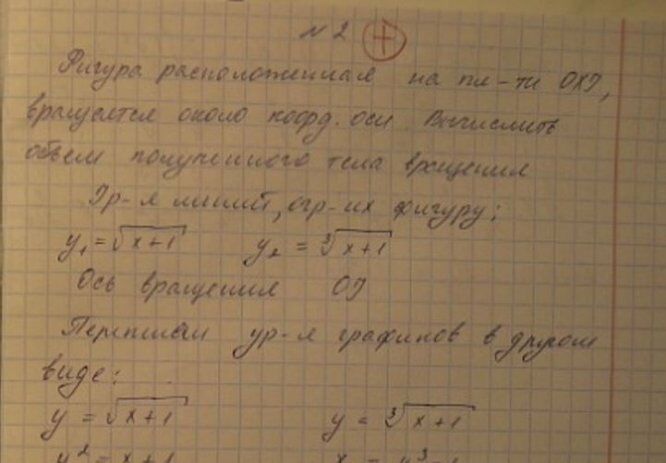 № 2
Фигура расположенная на пл-ти OXY,
вращается около коорд. оси. Вычислить
объем полученного тела вращения
Ур-я линий, огр-их фигуру:
y₁ = √x+1 y₂ = ³√x+1
Ось вращения OY
Перепишем ур-я графиков в другом
виде:
y = √x+1 y = ³√x+1
y² = x+1 x = y³-1